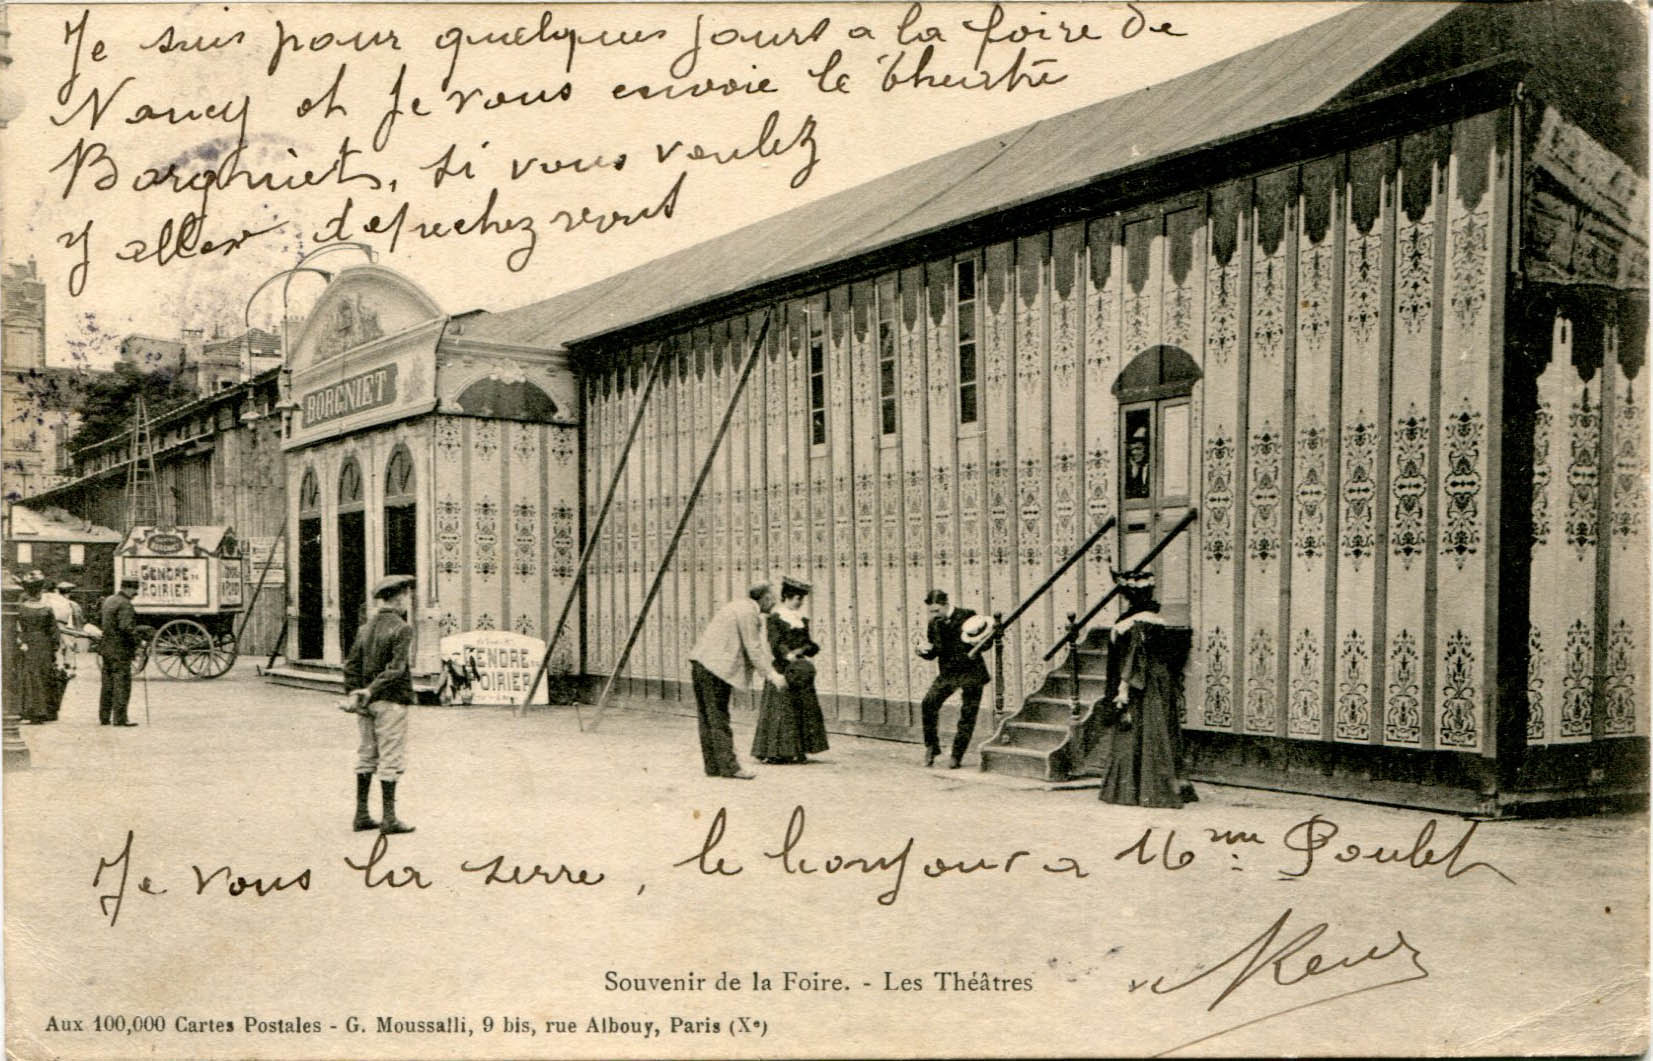 Je suis pour quelques jours a la foire de
Nancy et je vous envoie le théatre
Borgniet, si vous voulez
y aller depechez vous
BORGNIET
LE GENDRE DE
POIRIER
GENDRE DE
POIRIER
Je vous la serre, le bonjour a Mme Poulet
Souvenir de la Foire. - Les Théâtres
Aux 100,000 Cartes Postales - G. Moussalli, 9 bis, rue Albouy, Paris (Xe)